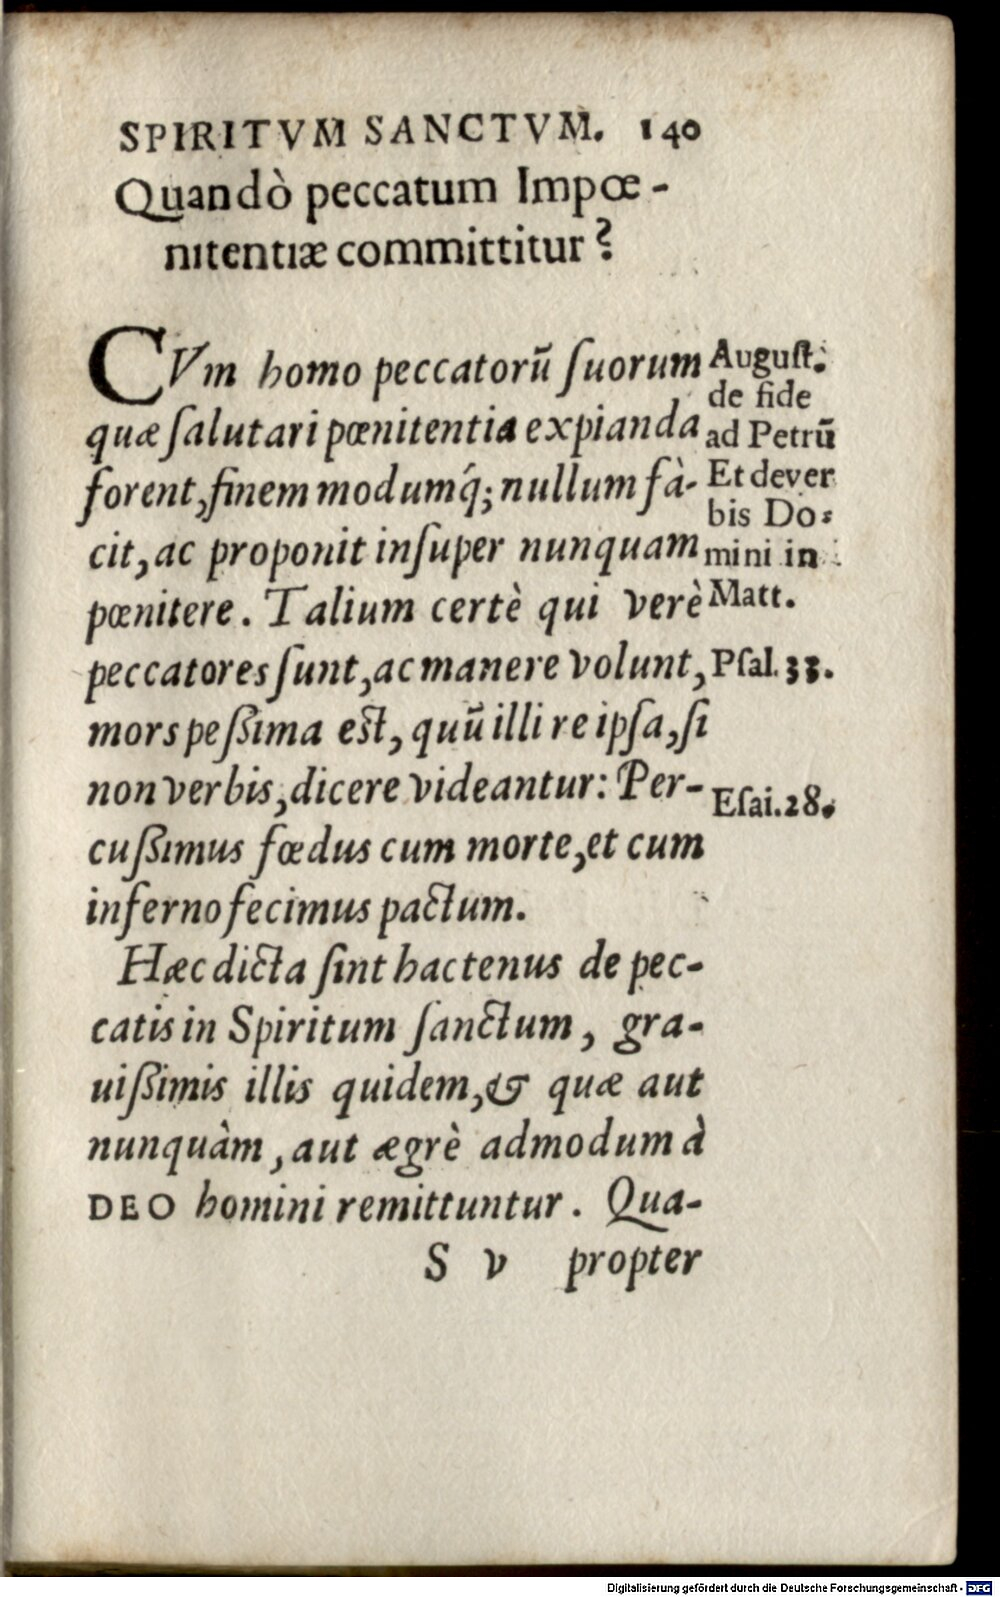 SPIRITVM SANCTVM. 140
Quandò peccatum Impœ-
nitentiæ committitur?
CVm homo peccatorū ſuorum
quæ ſalutari pœnitentia expianda
forent, finem modumq́; nullum fà-
cit, ac proponit inſuper nunquam
pœnitere. Talium certè qui verè
peccatores ſunt, ac manere volunt,
mors peßima est, quū illi re ipſa, ſi
non verbis, dicere videantur: Per-
cußimus fœdus cum morte, et cum
inferno fecimus pactum.
Hæc dicta ſint hactenus de pec-
catis in Spiritum ſanctum, gra-
uißimis illis quidem, & quæ aut
nunquàm, aut ægrè admodum à
DEO homini remittuntur. Qua-
S v propter
Auguſt.
de fide
ad Petrū
Et de ver
bis Do-
mini in
Matt.
Pſal. 33.
Eſai. 28.
Digitalisierung gefördert durch die Deutsche Forschungsgemeinschaft - DFG